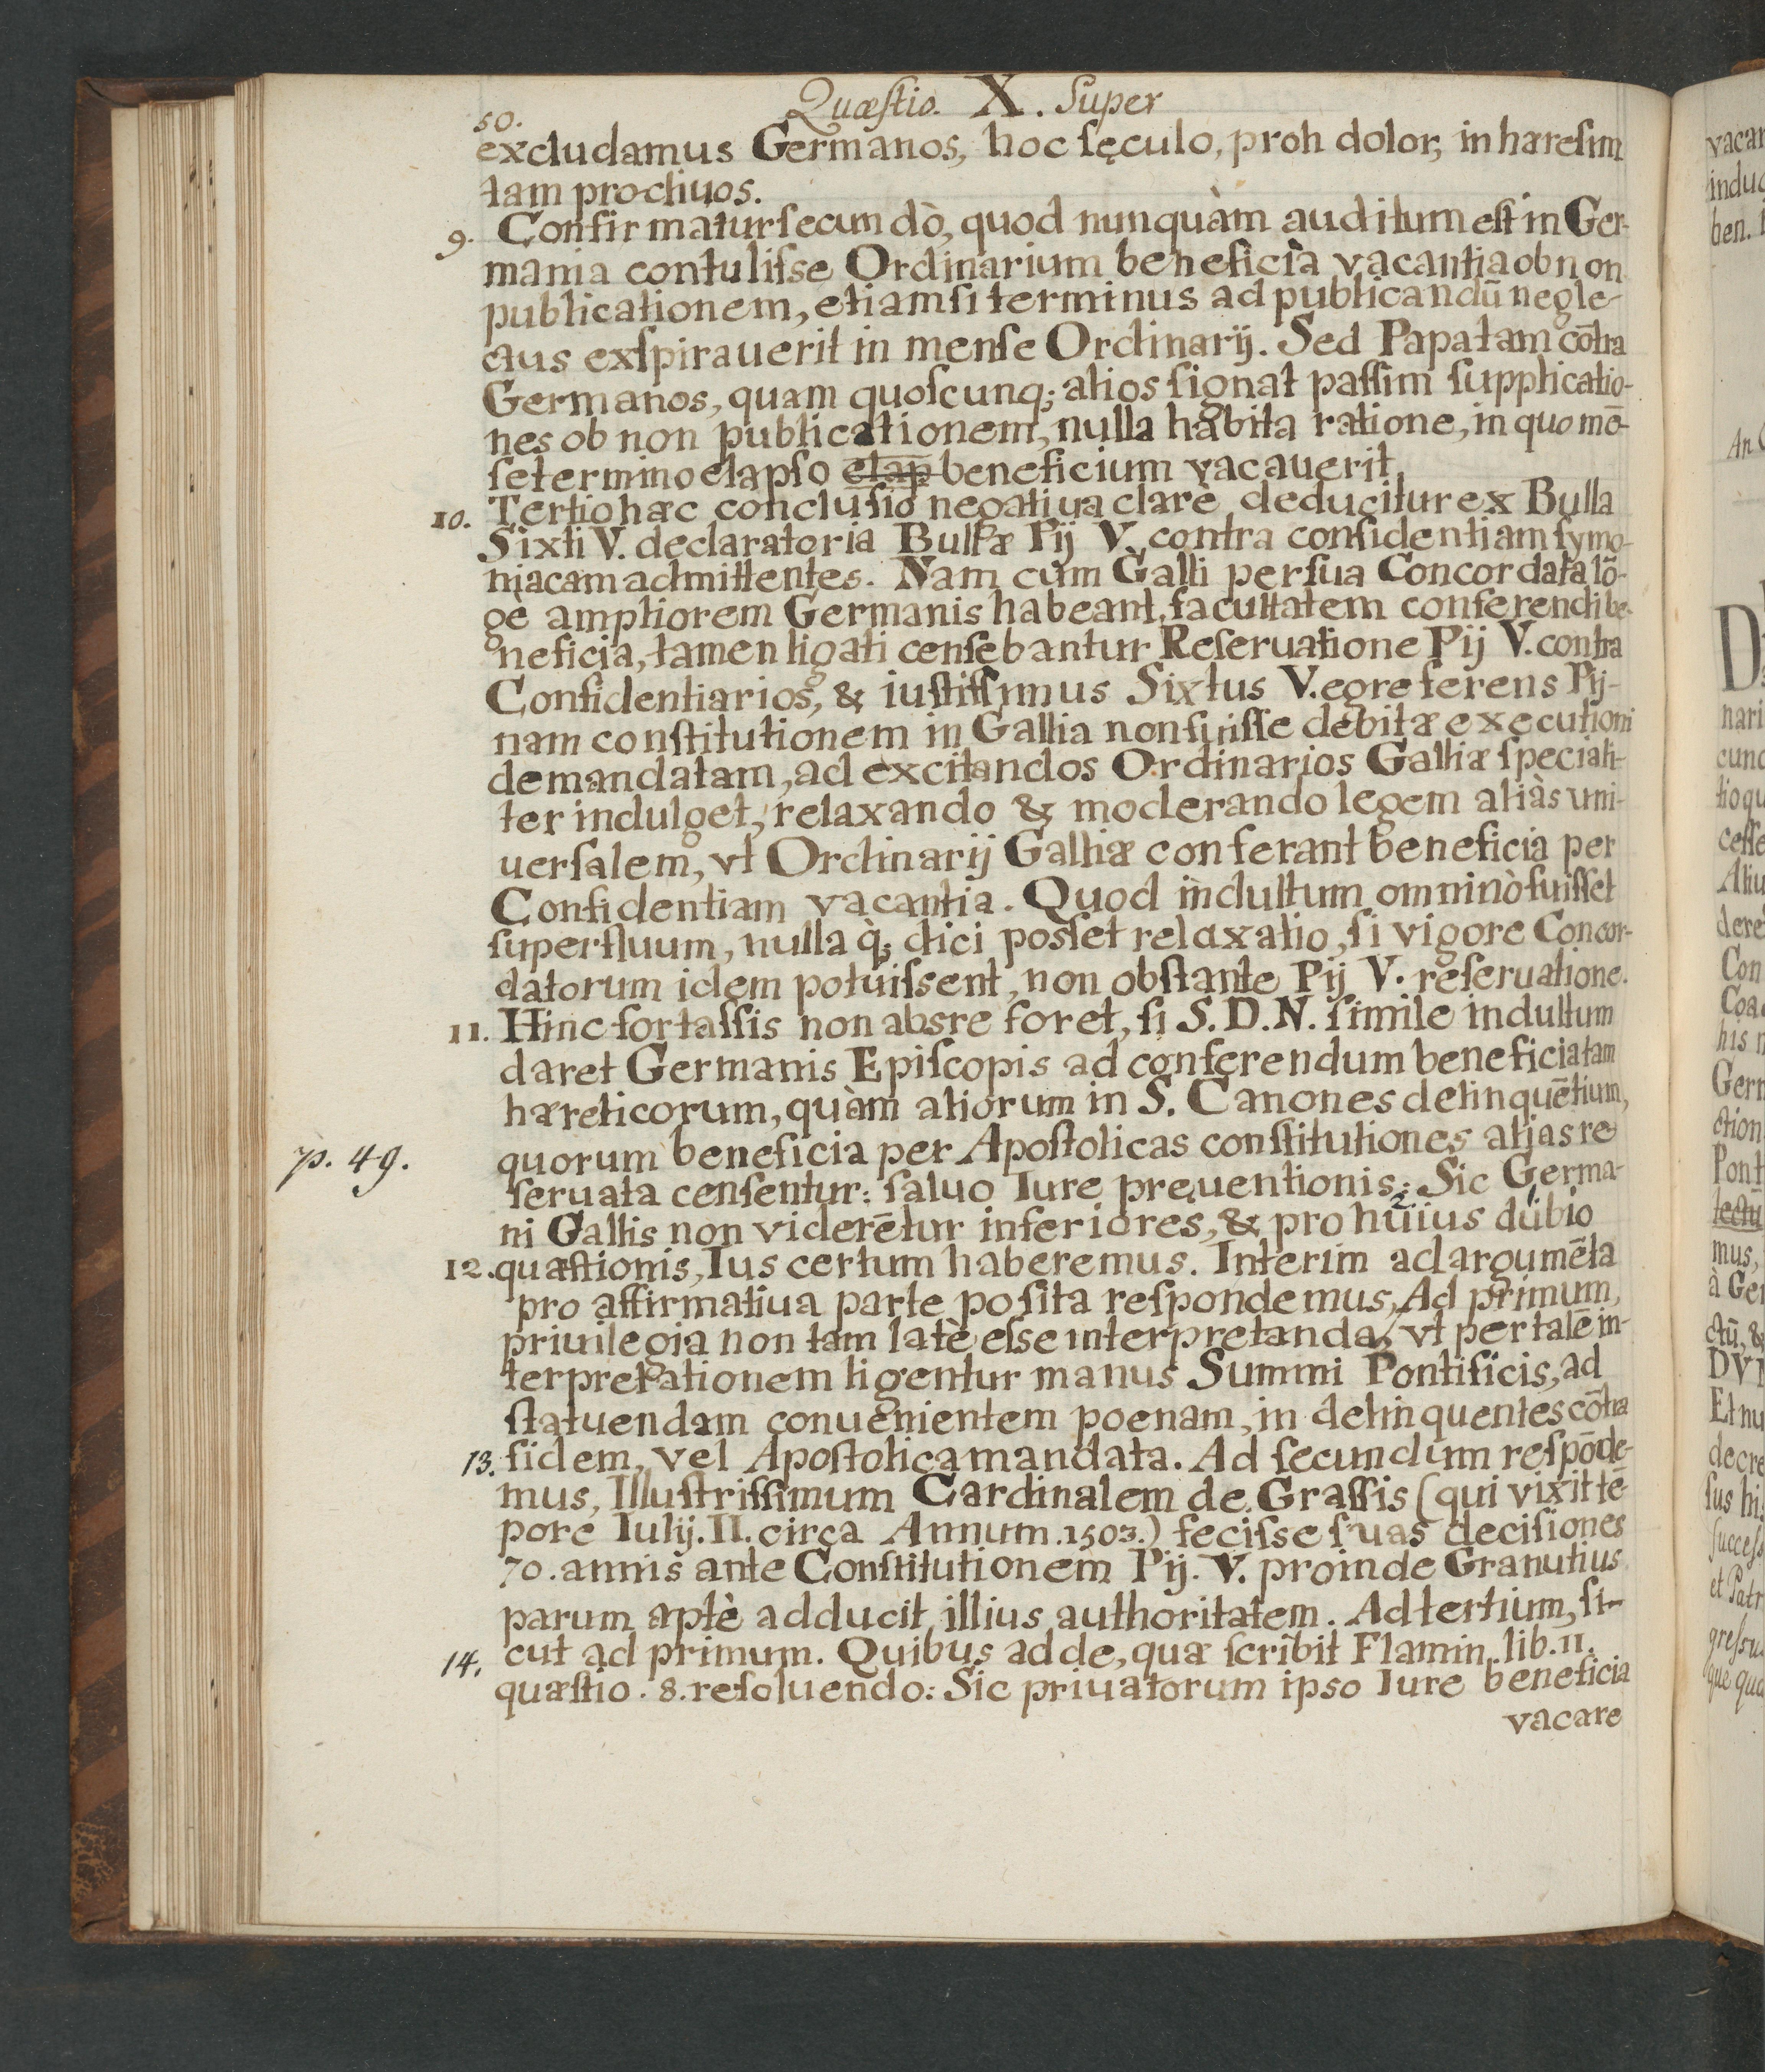 Quæſtio. X. Super
50.
excludamus Germanos, hoc ſęculo, proh dolor, in hæreſim
tam procliuos.
9. Confirmatur ſecundò, quod nunquàm auditum eſt in Ger-
mania contuliſse Ordinarium beneficia vacantia ob non
publicationem, etiamſi terminus ad publicandū negle-
ctus exſpirauerit in menſe Ordinarij. Sed Papa tam cōtra
Germanos, quam quoſcunq; alios ſignat paſſim ſupplicatio-
nes ob non publicationem, nulla habita ratione, in quo mē-
ſe termino elapſo elap beneficium vacauerit.
10. Tertio hæc concluſio negatiua clarè deducitur ex Bulla
Sixti V. declaratoria Bullæ Pij V. contra confidentiam ſymo-
niacam admittentes. Nam cùm Galli per ſua Concordata lō-
gè ampliorem Germanis habeant, facultatem conferendi be-
neficia, tamen ligati cenſebantur Reſeruatione Pij V. contra
Confidentiarios, & iuſtiſſimus Sixtus V. egre ferens Pij-
nam conſtitutionem in Gallia non fuiſſe debitæ executioni
demandatam, ad excitandos Ordinarios Galliæ ſpeciali-
ter indulget, relaxando & moderando legem aliàs uni-
uerſalem, vt Ordinarij Galliæ conferant beneficia per
Confidentiam vacantia. Quod indultum omninò fuiſſet
ſuperfluum, nulla q́; dici poſſet relaxatio, ſi vigore Concor-
datorum idem potuiſsent, non obſtante Pij V. reſeruatione.
11. Hinc fortaſſis non abs re foret, ſi S. D. N. ſimile indultum
daret Germanis Epiſcopis ad conferendum beneficia tam
hæreticorum, quàm aliorum in S. Canones delinquētium,
p. 49.
quorum beneficia per Apoſtolicas conſtitutiones alias re
ſeruata cenſentur: ſaluo Iure preuentionis: Sic Germa-
ni Gallis non viderētur inferiores, & pro huius dubio
12. quæſtionis, Ius certum haberemus. Interim ad argumēta
pro affirmatiua parte poſita reſpondemus, Ad primum,
priuilegia non tam latè eſse interpretanda, vt per talē in-
terpretationem ligentur manus Summi Pontificis, ad
ſtatuendam conuenientem poenam, in delinquentes cōtra
13. fidem, vel Apoſtolica mandata. Ad ſecundum reſpōde-
mus, Illuſtriſſimum Cardinalem de Graſſis (qui vixit tē-
pore Iulij. II. circa Annum. 1503.) feciſse ſuas deciſiones
70. annis ante Conſtitutionem Pij. V. proinde Granutius
parum aptè adducit illius authoritatem. Ad tertium, ſi-
14. cut ad primum. Quibus adde, quæ ſcribit Flamin. lib. 11.
quæſtio. 8. reſoluendo: Sic priuatorum ipso Iure beneficia
vacare